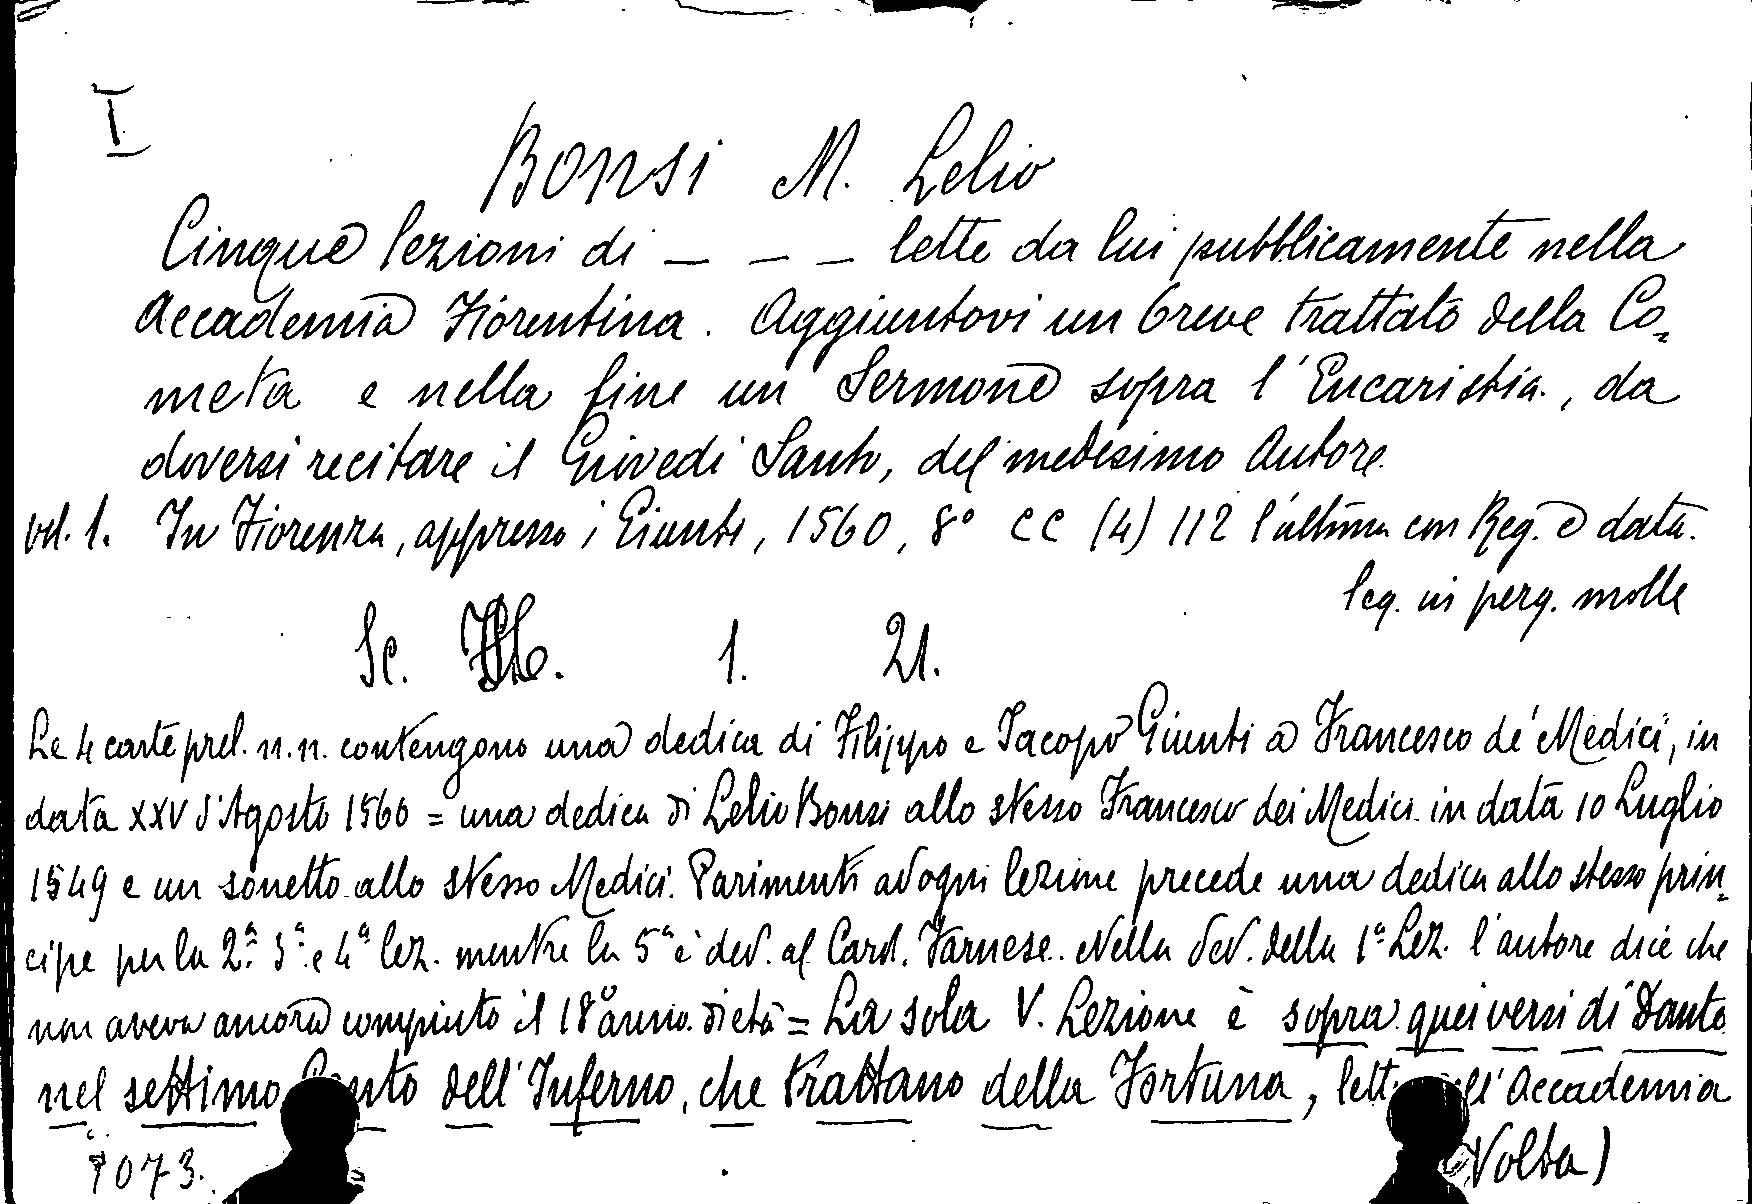 I
Bonsi M. Lelio
Cinque lezioni di _ _ _ lette da lui pubblicamente nella
Accademia Fiorentina. Aggiuntovi un breve trattato della Co=
meta e nella fine un Sermone sopra l'Eucaristia, da
doversi recitare il Giovedi Santo, del medesimo Autore.
vol. 1. In Fiorenza, appresso i Giunti, 1560, 8° CC (4) 112 l'ultima con Reg. e data.
leg. in perg. molle
Sc. 1. 21.
Le 4 carte prel. n.n. contengono una dedica di Filippo e Jacopo Giunti a Francesco de' Medici, in
data XXV d'Agosto 1560 = una dedica di Lelio Bonsi allo stesso Francesco dei Medici in data 10 Luglio
1549 e un sonetto allo stesso Medici. Parimenti ad ogni lezione precede una dedica allo stesso prin=
cipe per la 2ª 3ª e 4ª lez. mentre la 5ª è ded. al Card. Farnese. Nella ded. della 1ª Lez. l'autore dice che
non aveva ancora compiuto il 18° anno d'età = La sola V. Lezione è sopra quei versi di Dante
nel settimo Canto dell'Inferno, che trattano della Fortuna, letta nell'Accademia
7073. Volta)